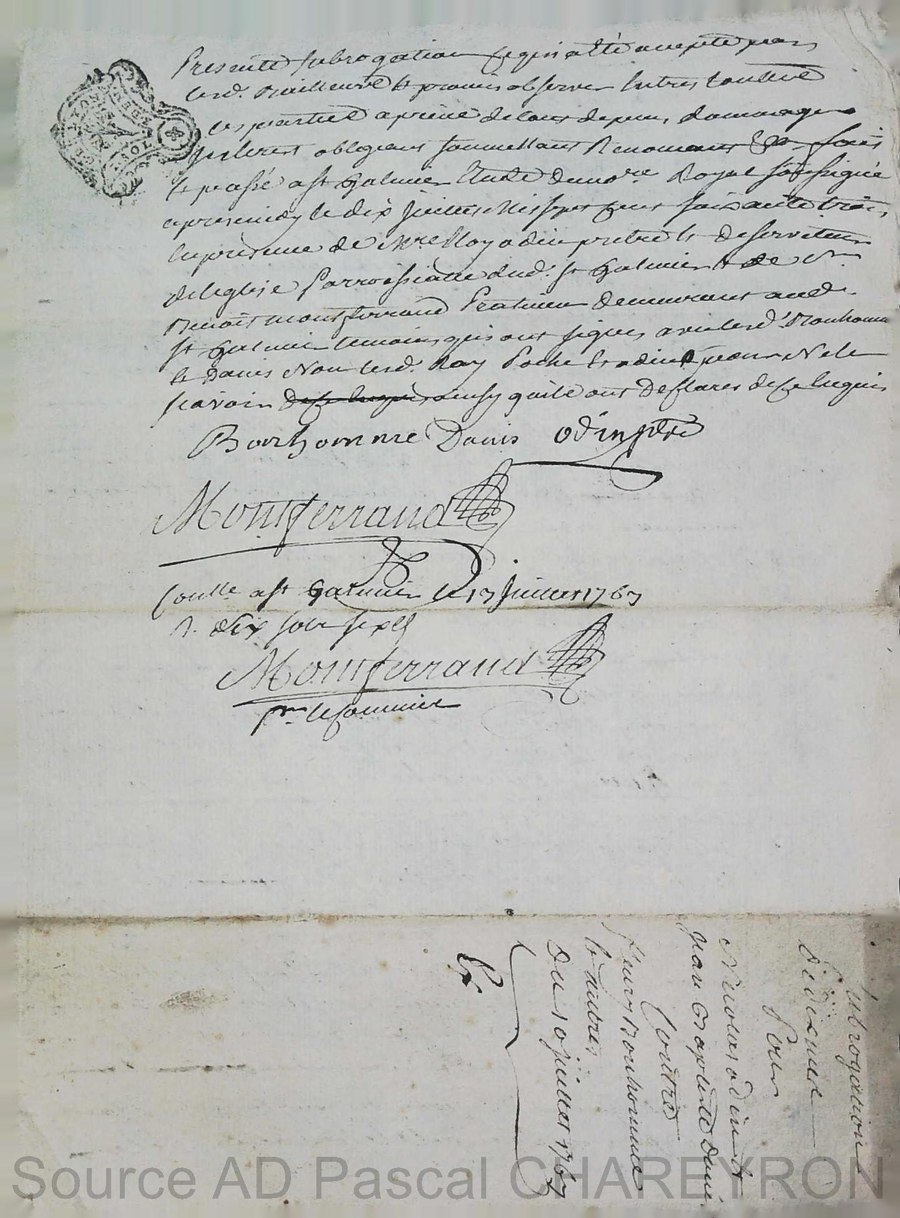 presente subrogation ce qui a été accepté par
lesd. prometant observer
les parties a peine de tous depens dommages
interest obligeant soumettant Renoncant
et passé a st Galmier Etude du no.re Royal soussigné
apres midy le dix juillet mil sept cent soixante trois
en presence de odin pretre et deserviteur
de l'eglise parroissialle dud. st Galmier & de sr
Benoit montferrand praticien demeurant aud.
st Galmier temoins qui ont signés avec lesd. Bonhomme
et Danis Non lesd. Ray et odin pour Ne le
scavoir ainsy quils ont desclares de ce enquis
Bonhomme Danis odin ptre
Montferrand
Conllé a st Galmier le 13 juillet 1763
R. dix sols six d
Montferrand
pr. le commier
subrogation
Pour
Nicolas odin et
jean Baptiste Danis
Contre
Bonhomme
et autres
Du 10 juillet 1763
Source AD Pascal CHAREYRON